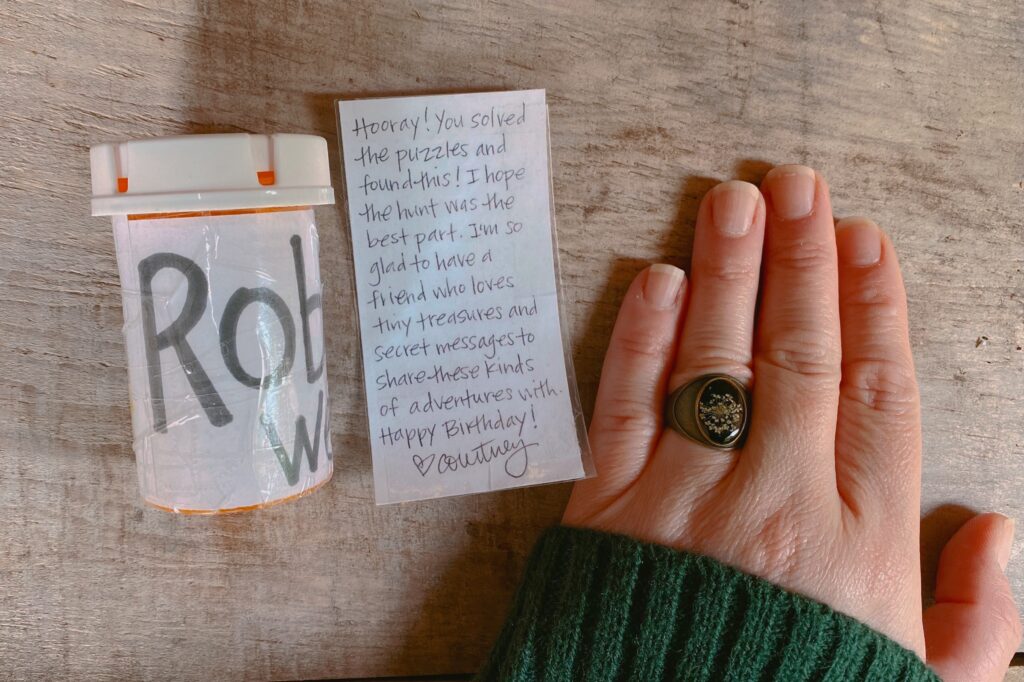 Rob
Hooray! You solved
the puzzles and
found this! I hope
the hunt was the
best part. I'm so
glad to have a
friend who loves
tiny treasures and
secret messages to
share these kinds
of adventures with.
Happy Birthday!
♡ courtney